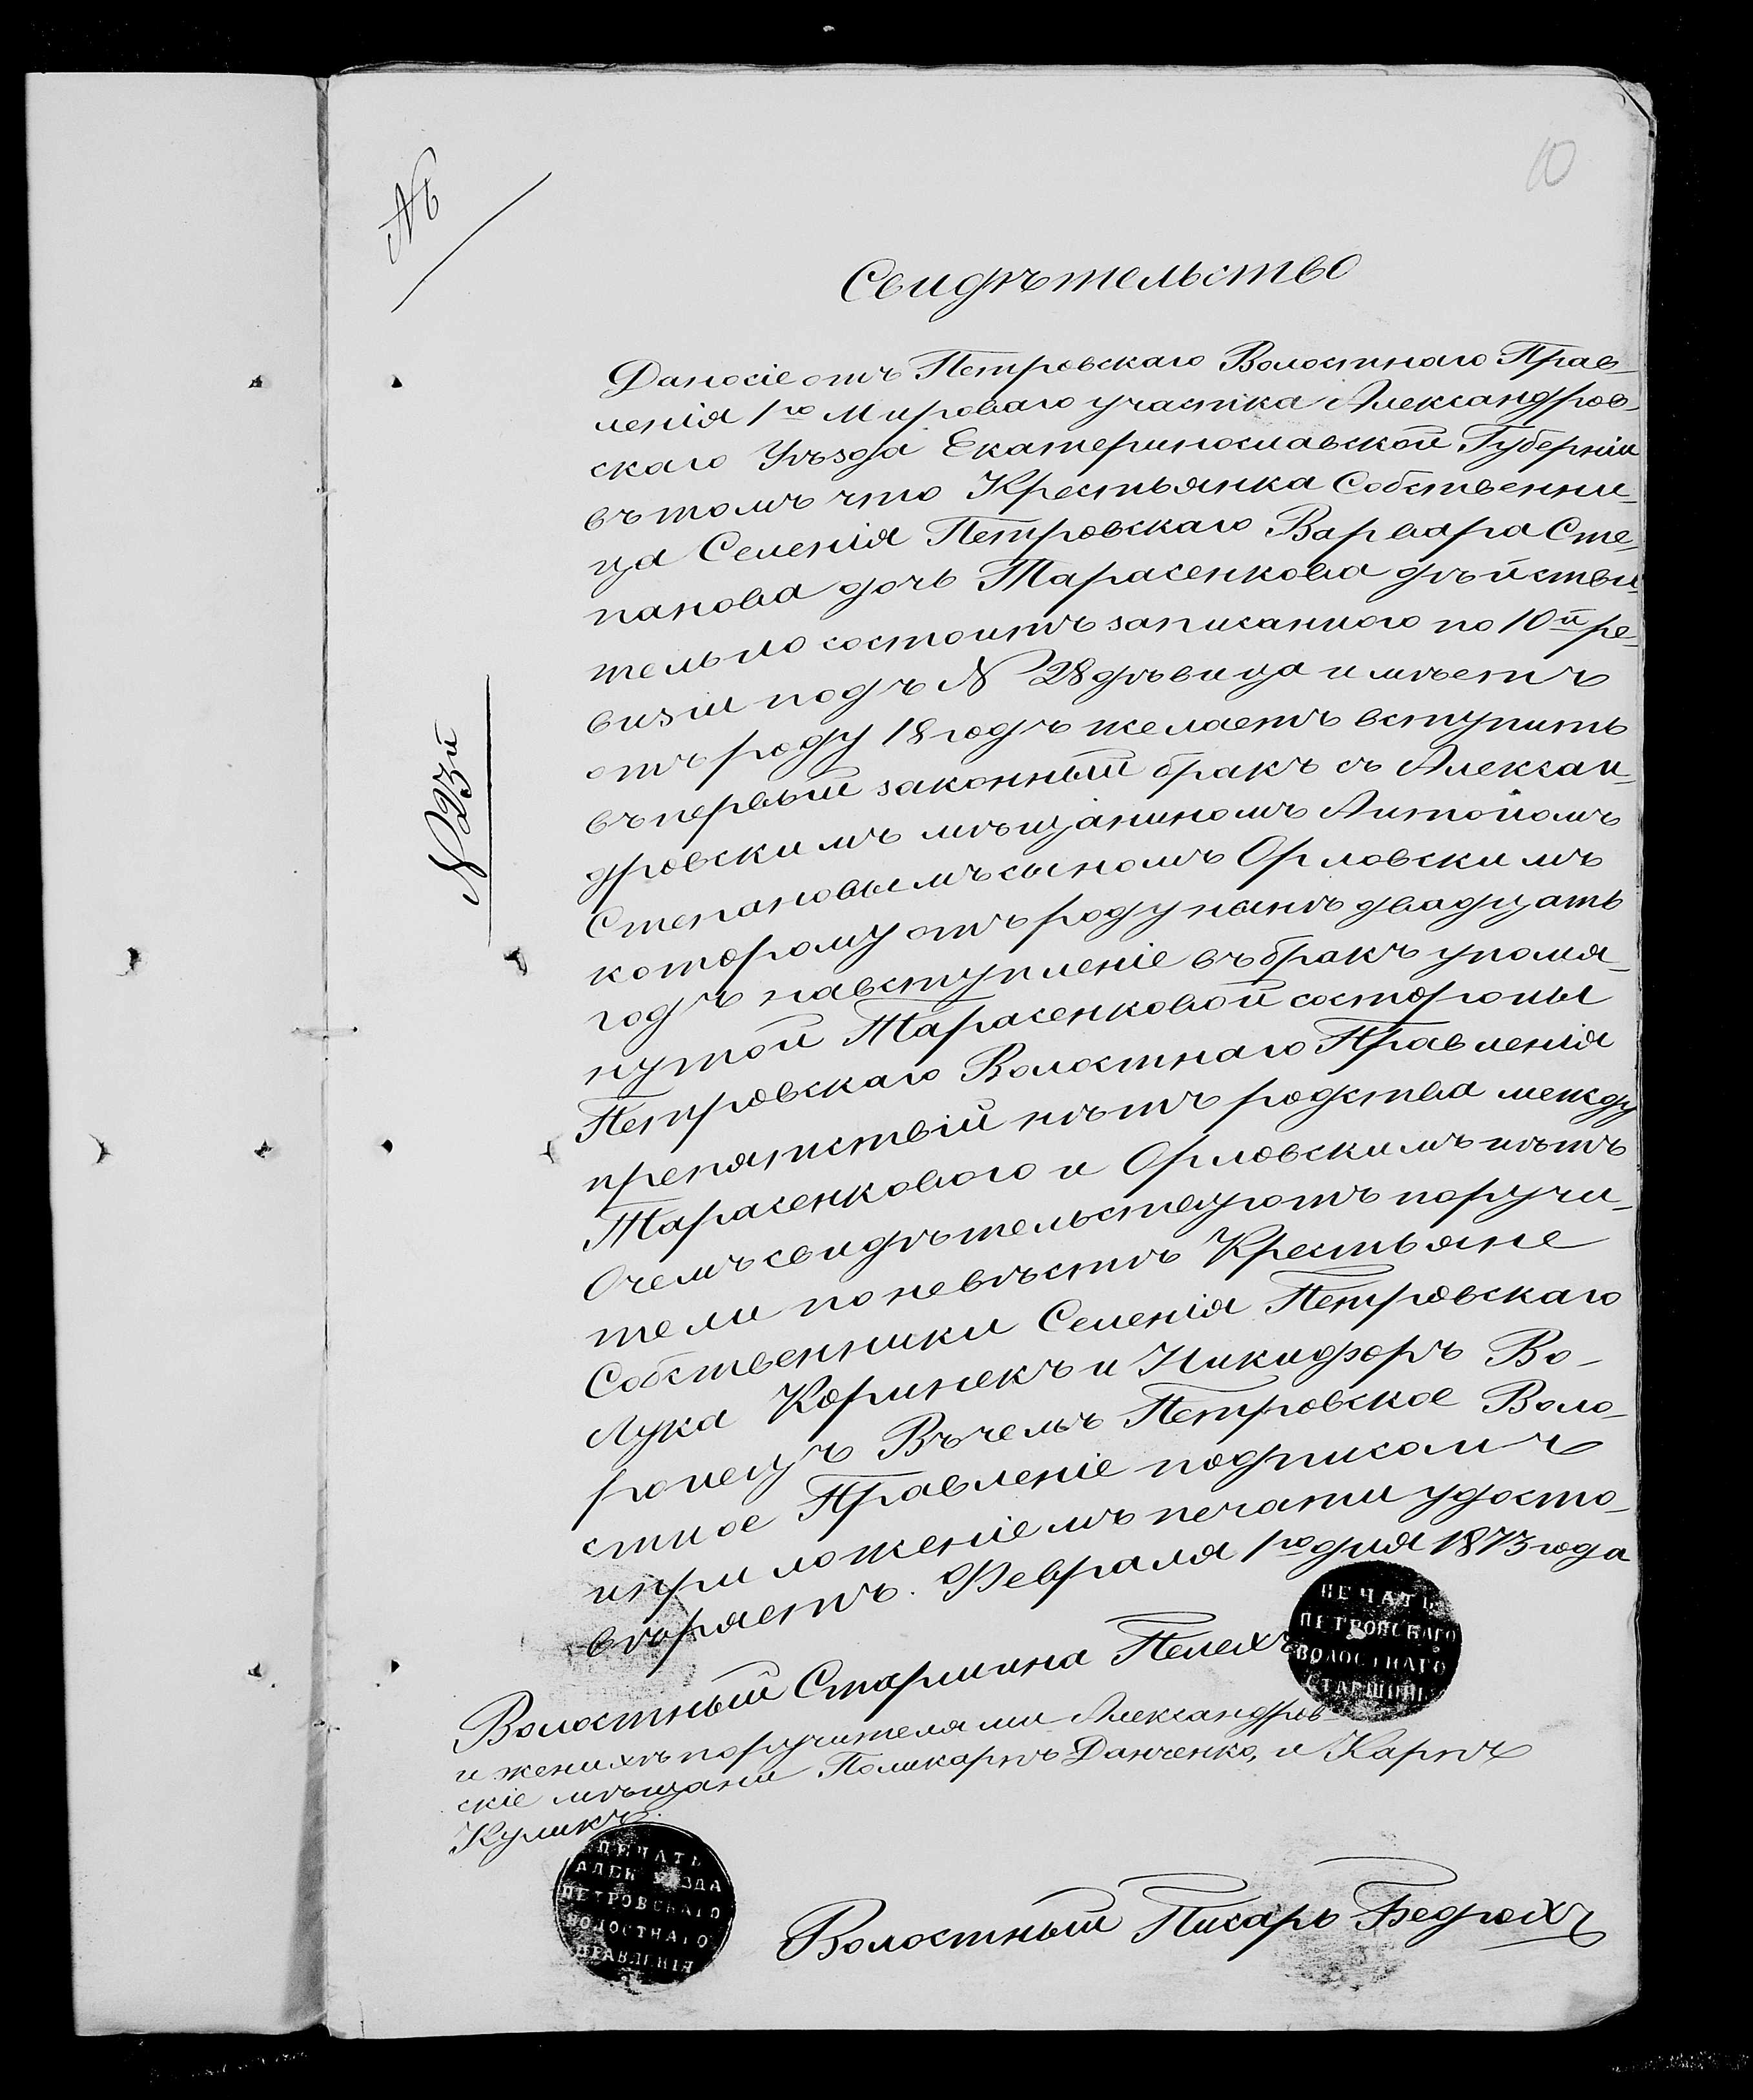 10
№
Свидѣтельство
Дано сіе отъ Петровскаго Волостнаго Прав-
ленія 1го Мироваго участка Александров-
скаго Уѣзда Екатеринославской Губерніи
въ томъ что Крестьянка Собственни-
ца Селенія Петровскаго Варвара Сте-
панова дочь Тарасенкова дѣйстви-
тельно состоитъ записанною по 10й ре-
визіи подъ № 28 дѣвица имѣетъ
отъ роду 18 годъ желаетъ вступить
въ первый законный бракъ съ Алексан-
дровскимъ мѣщаниномъ Антономъ
Степановымъ сыномъ Орловскимъ
которому отъ роду нынѣ двадцать
годъ навступленіе въ бракъ упомя-
нутой Тарасенковой состороны
Петровскаго Волостнаго Правленія
препятствій нѣтъ родства между
Тарасенковою и Орловскимъ нѣтъ
Очемъ свидѣтельствуютъ поручи-
тели поневѣстѣ Крестьяне
Собственники Селенія Петровскаго
Лука Коринекъ и Никифоръ Во-
ронецъ Въ чемъ Петровское Воло-
стное Правленіе подписомъ
и приложеніемъ печати удосто-
вѣряетъ. Февраля 1го дня 1873 года
№ 23й
Волостный Старшина Пелехъ
и женихѣ поручителями Александров-
скіе мѣщани Поликарпъ Данченко, и Карпъ
Куликъ.
ПЕЧАТЬ
ПЕТРОВСКАГО
ВОЛОСТНАГО
СТАРШИНЫ
ПЕЧАТЬ
АЛЕК УѢЗДА
ПЕТРОВСКАГО
ВОЛОСТНАГО
ПРАВЛЕНІЯ
Волостный Писарь Бедрохъ